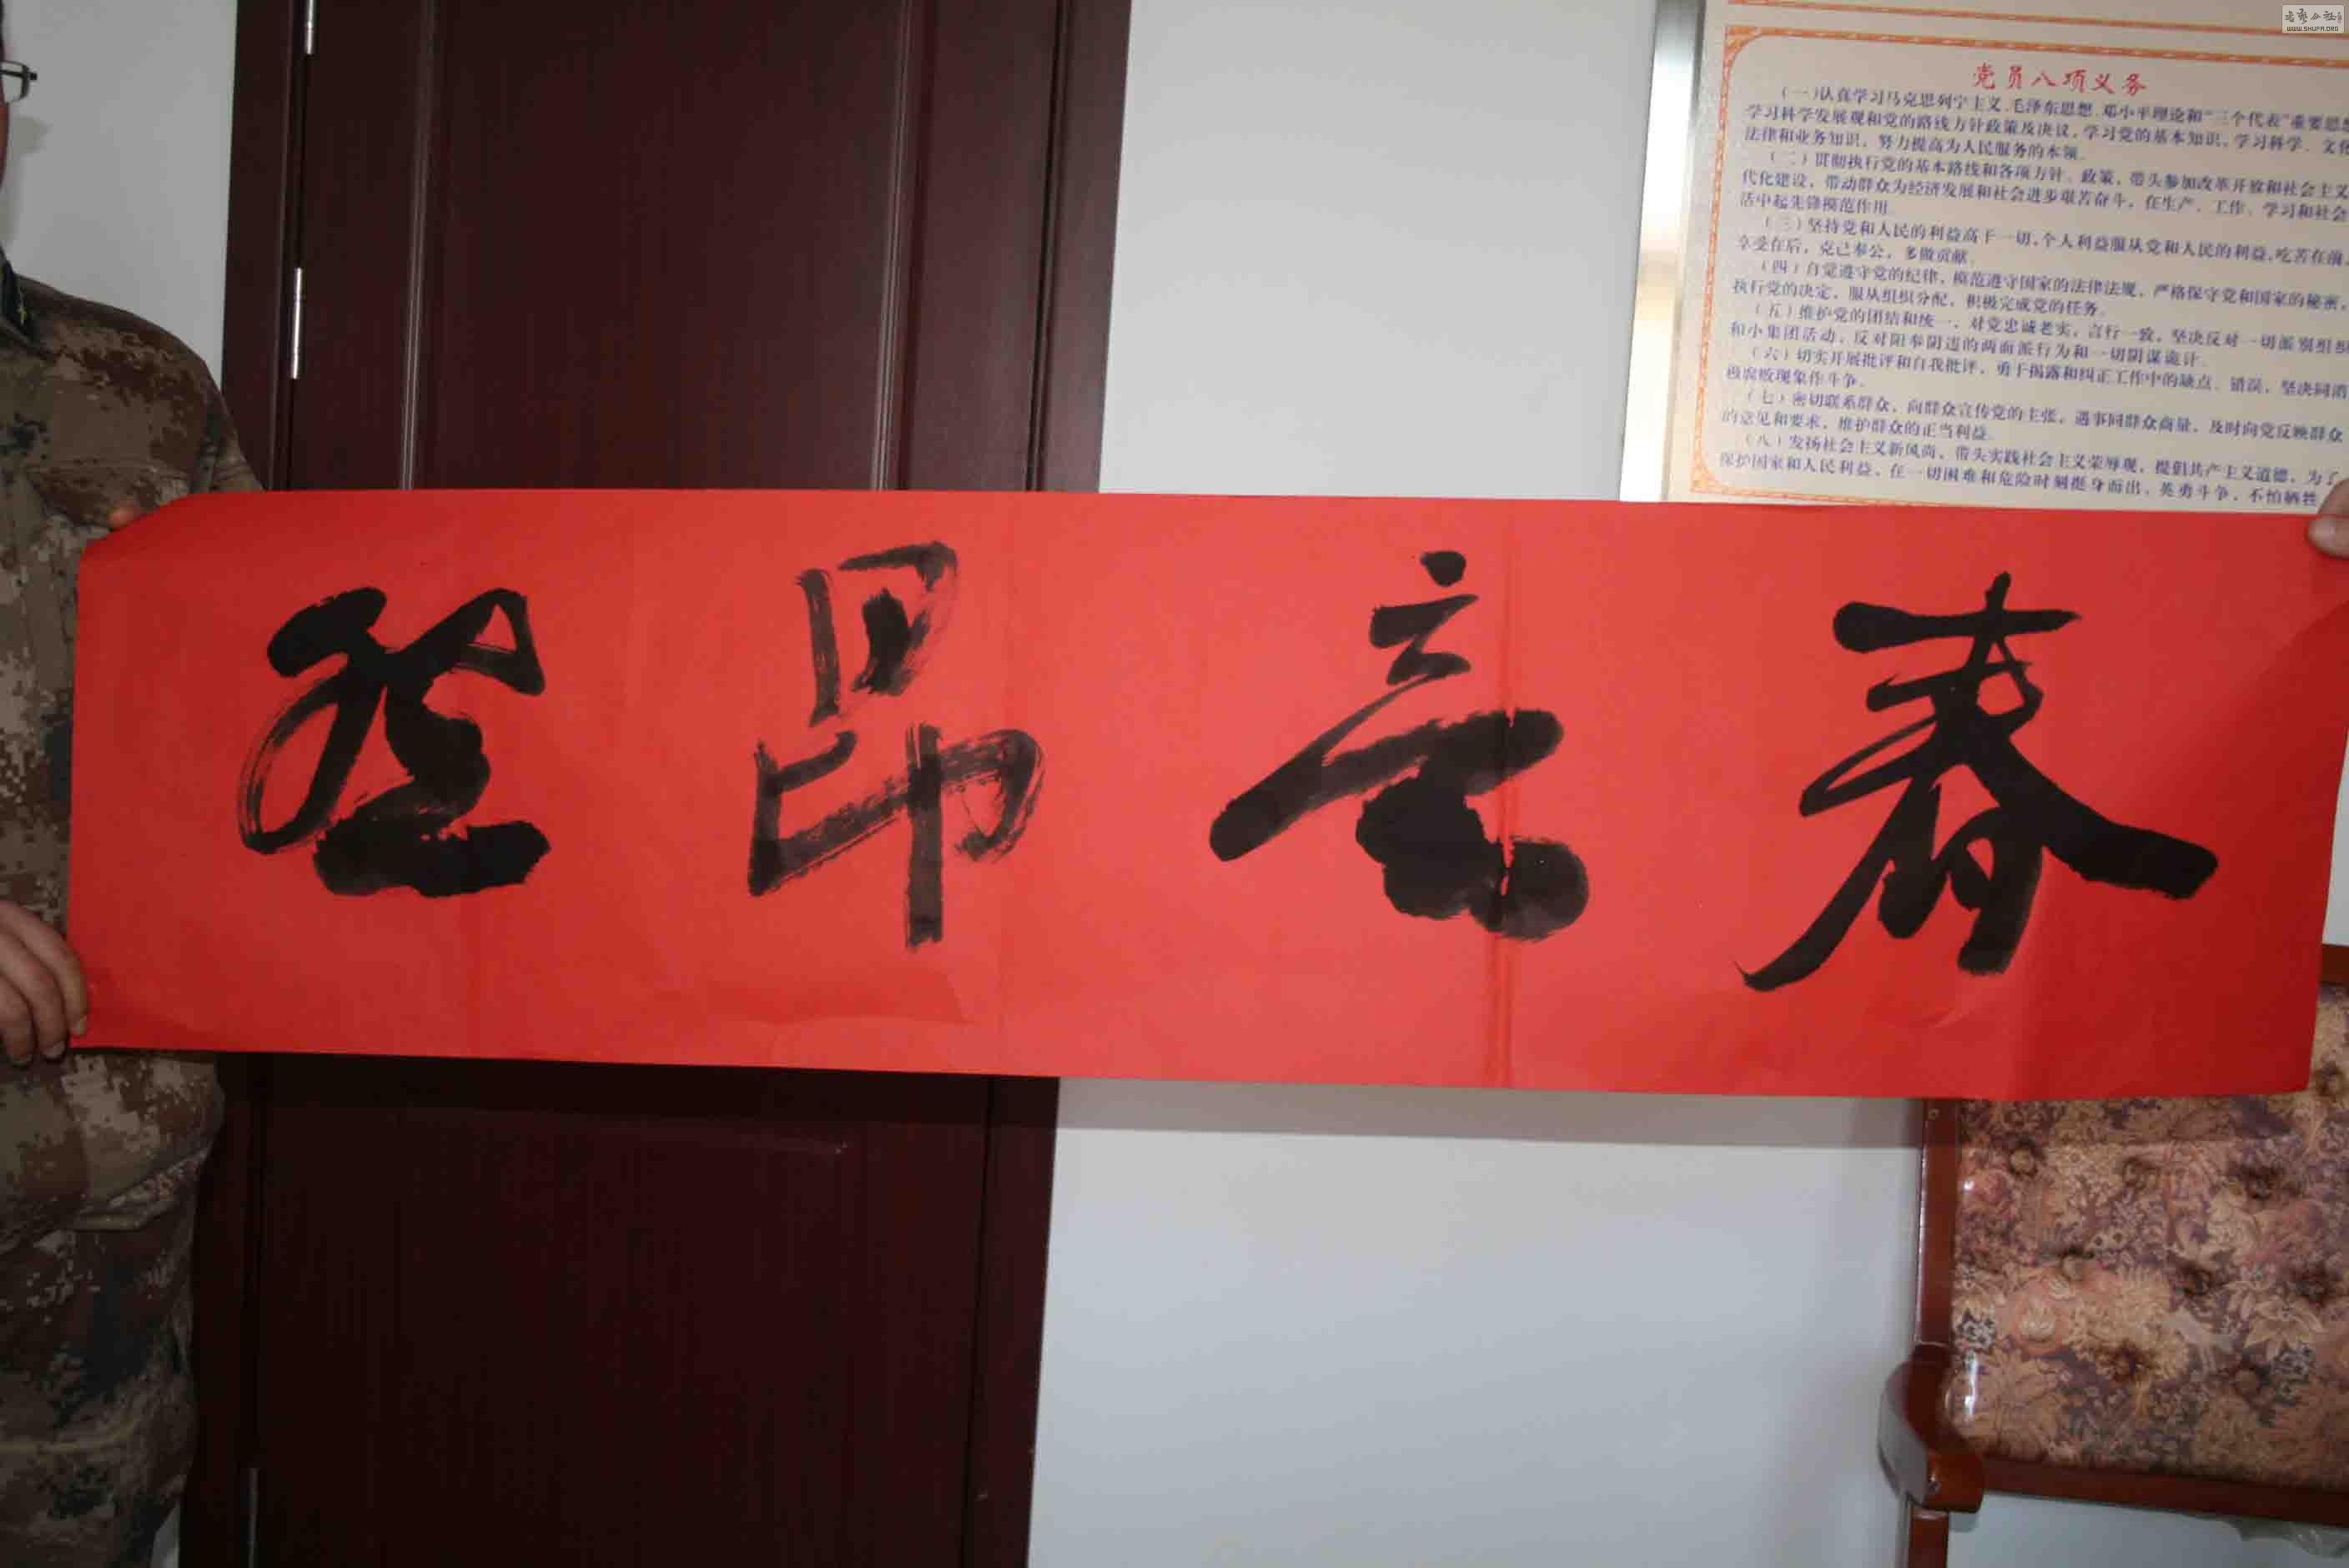 春意昂然
党员八项义务
(一)认真学习马克思列宁主义、毛泽东思想、邓小平理论和“三个代表”重要思想
学习科学发展观和党的路线方针政策及决议，学习党的基本知识，学习科学、文化
法律和业务知识，努力提高为人民服务的本领。
(二)贯彻执行党的基本路线和各项方针、政策，带头参加改革开放和社会主义
代化建设，带动群众为经济发展和社会进步艰苦奋斗，在生产、工作、学习和社会
活中起先锋模范作用。
(三)坚持党和人民的利益高于一切，个人利益服从党和人民的利益，吃苦在前，
享受在后，克己奉公，多做贡献。
(四)自觉遵守党的纪律，模范遵守国家的法律法规，严格保守党和国家的秘密，
执行党的决定，服从组织分配，积极完成党的任务。
(五)维护党的团结和统一，对党忠诚老实，言行一致，坚决反对一切派别组织
和小集团活动，反对阳奉阴违的两面派行为和一切阴谋诡计。
(六)切实开展批评和自我批评，勇于揭露和纠正工作中的缺点、错误，坚决同消
极腐败现象作斗争。
(七)密切联系群众，向群众宣传党的主张，遇事同群众商量，及时向党反映群众
的意见和要求，维护群众的正当利益。
(八)发扬社会主义新风尚，带头实践社会主义荣辱观，提倡共产主义道德，为了
保护国家和人民利益，在一切困难和危险时刻挺身而出，英勇斗争，不怕牺牲
WWW.SHUFA.ORG